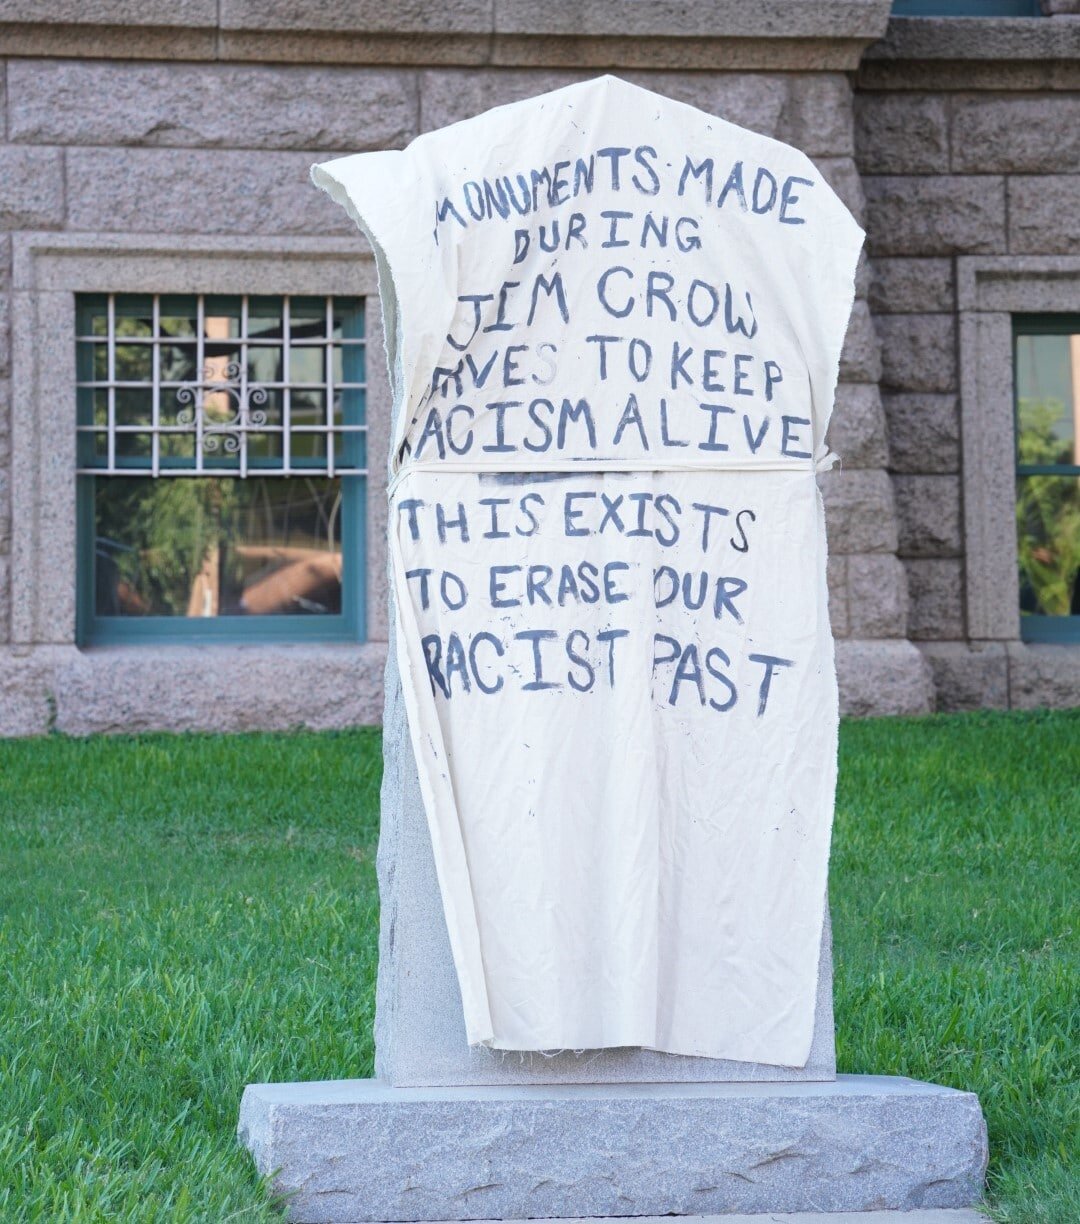 MONUMENTS MADE
DURING
JIM CROW
SERVES TO KEEP
RACISM ALIVE
THIS EXISTS
TO ERASE OUR
RACIST PAST